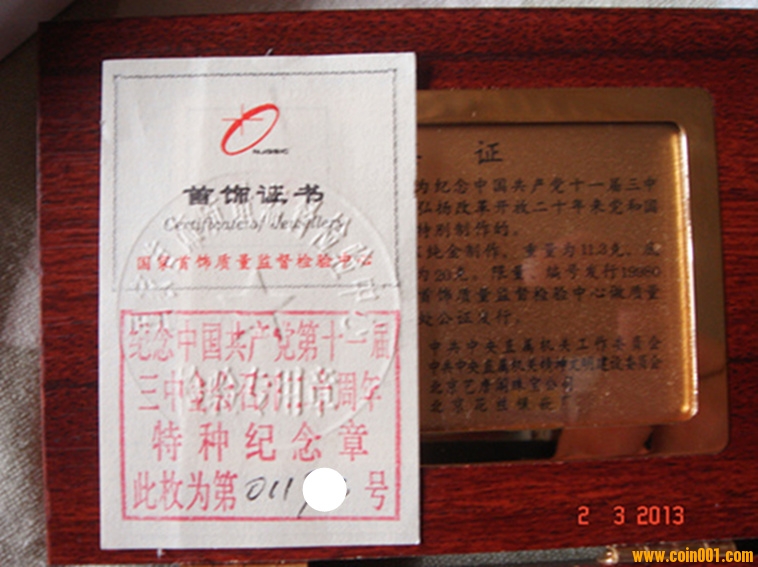 NJQSIC
首饰证书
Certificate of Jewellery
国家首饰质量监督检验中心
纪念中国共产党第十一届
三中全会召开二十周年
特种纪念章
此枚为第 011 号
证
为纪念中国共产党十一届三中
弘扬改革开放二十年来党和国
特别制作的。
纯金制作，重量为11.3克，底
为20克，限量 编号发行19980
首饰质量监督检验中心做质量
公证发行。
中共中央直属机关工作委员会
中共中央直属机关精神文明建设委员会
北京艺
珠宝公司
北京花丝镶嵌厂
2 3 2013
www.coin001.com